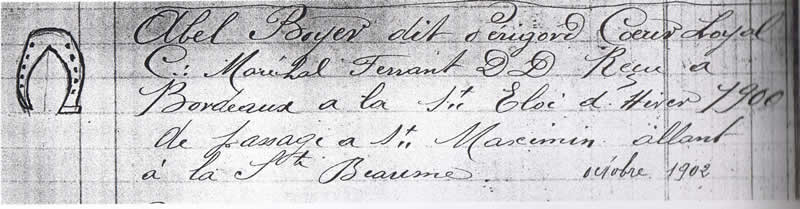 Abel Boyer dit Périgord Cœur Loyal
C∴ Maréchal Ferrant D D Reçu a
Bordeaux a la St Eloi d'Hiver 1900
de passage a St Maximin allant
à la Ste Beaume. octobre 1902